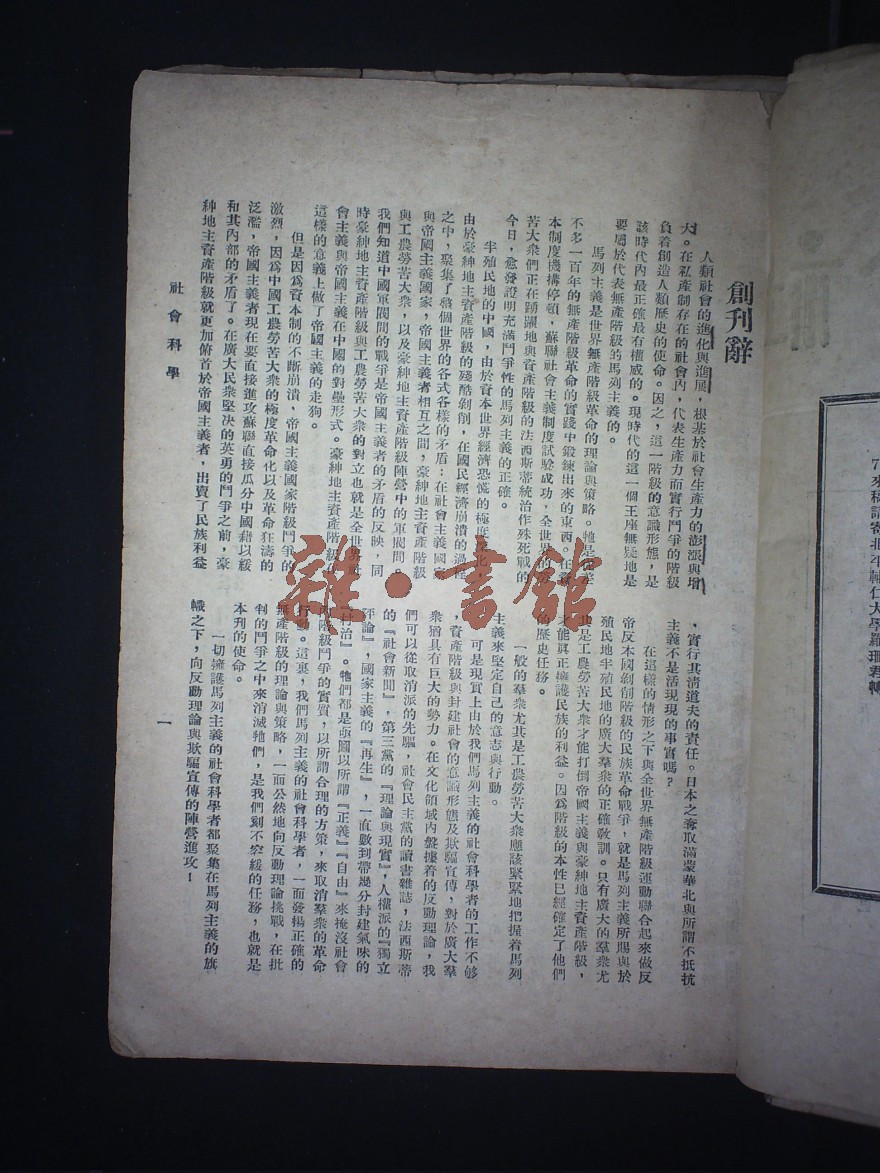 來稿請寄北平輔仁大學羅
創刊辭
人類社會的進化與進展，根基於社會生產力的膨漲與增
大。在私產制存在的社會內，代表生產力而實行鬥爭的階級
負着創造人類歷史的使命。因之，這一階級的意識形態，是
該時代內最正確最有權威的。現時代的這一個王座無疑地是
要屬於代表無產階級的馬列主義的。
馬列主義是世界無產階級革命的理論與策略。牠是在差
不多一百年的無產階級革命的實踐中鍛鍊出來的東西。在資
本制度機構停頓，蘇聯社會主義制度試驗成功，全世界的勞
苦大衆們正在踴躍地與資產階級的法西斯蒂統治作殊死戰的
今日，愈發證明充滿鬥爭性的馬列主義的正確。
半殖民地的中國，由於資本世界經濟恐慌的極度深化
由於豪紳地主資產階級的殘酷剝削，在國民經濟崩潰的過程
之中，聚集了整個世界的各式各樣的矛盾：在社會主義國家
與帝國主義國家，帝國主義者相互之間，豪紳地主資產階級
與工農勞苦大衆，以及豪紳地主資產階級陣營中的軍閥間。
我們知道中國軍閥間的戰爭是帝國主義者的矛盾的反映，同
時豪紳地主資產階級與工農勞苦大衆的對立也就是全世界社
會主義與帝國主義在中國的對壘形式。豪紳地主資產階級在
這樣的意義上做了帝國主義的走狗。
但是因爲資本制的不斷崩潰，帝國主義國家階級鬥爭的
激烈，因爲中國工農勞苦大衆的極度革命化以及革命狂濤的
泛濫，帝國主義者現在要直接進攻蘇聯直接瓜分中國藉以緩
和其內部的矛盾了。在廣大民衆堅决的英勇的鬥爭之前，豪
紳地主資產階級就更加俯首於帝國主義者，出賣了民族利益
，實行其清道夫的責任。日本之奪取滿蒙華北與所謂不抵抗
主義不是活現現的事實嗎？
在這樣的情形之下與全世界無產階級運動聯合起來做反
帝反本國剝削階級的民族革命戰爭，就是馬列主義所賜與於
殖民地半殖民地的廣大羣衆的正確敎訓。只有廣大的羣衆尤
其是工農勞苦大衆才能打倒帝國主義與豪紳地主資產階級，
才能真正擁護民族的利益。因爲階級的本性已經確定了他們
的歷史任務。
一般的羣衆尤其是工農勞苦大衆應該緊緊地把握着馬列
主義來堅定自己的意志與行動。
可是現實上由於我們馬列主義的社會科學者的工作不够
，資產階級與封建社會的意識形態及欺騙宣傳，對於廣大羣
衆猶具有巨大的勢力。在文化領域內盤據着的反動理論，我
們可以從取消派的先驅，社會民主黨的讀書雜誌，法西斯蒂
的『社會新聞』，第三黨的『理論與現實』，人權派的『獨立
評論』，國家主義的『再生』，一直數到帶幾分封建氣味的
『村治』。牠們都是亟圖以所謂『正義』『自由』來掩沒社會
內階級鬥爭的實質，以所謂合理的方策，來取消羣衆的革命
行動。這裏，我們馬列主義的社會科學者，一面發揚正確的
無產階級的理論與策略，一面公然地向反動理論挑戰，在批
判的鬥爭之中來消滅牠們，是我們刻不容緩的任務，也就是
本刊的使命。
一切擁護馬列主義的社會科學者都聚集在馬列主義的旗
幟之下，向反動理論與欺騙宣傳的陣營進攻！
社會科學
一
雜·書館